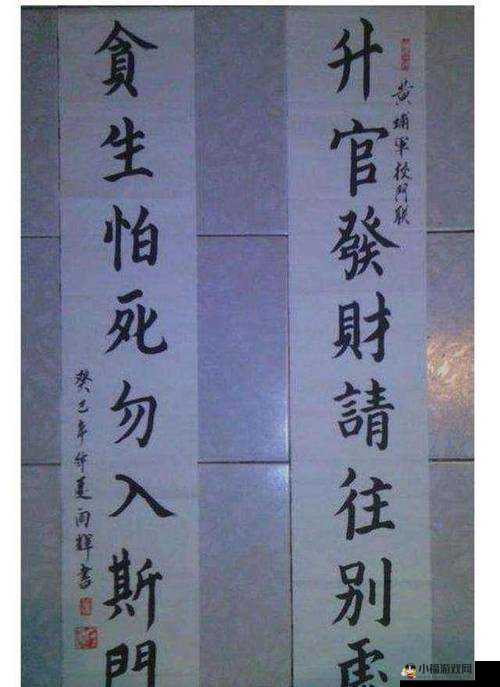 升官發財請往別處
黃埔軍校門聯
貪生怕死勿入斯門
癸巳年仲夏雨輝書
小福游戏网